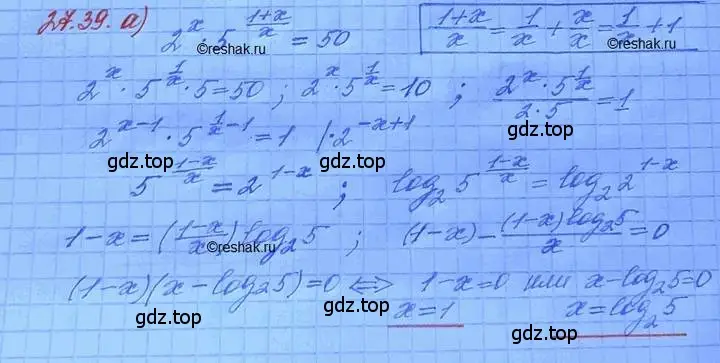 27.39. а) 2^x · 5^((1+x)/x) = 50   (1+x)/x = 1/x + x/x = 1/x + 1
©reshak.ru ©reshak.ru
2^x · 5^(1/x) · 5 = 50 ; 2^x · 5^(1/x) = 10 ; (2^x · 5^(1/x))/(2·5) = 1
2^(x-1) · 5^(1/x - 1) = 1 | · 2^(-x+1)
gdz.top gdz.top gdz.top
5^((1-x)/x) = 2^(1-x) ; log₂ 5^((1-x)/x) = log₂ 2^(1-x)
gdz.top gdz.top gdz.top
1-x = ((1-x)/x) log₂ 5 ; (1-x) - ((1-x) log₂ 5)/x = 0
©reshak.ru
(1-x)(x - log₂ 5) = 0 ⇔ 1-x = 0 или x - log₂ 5 = 0
gdz.top gdz.top gdz.top
x = 1   x = log₂ 5